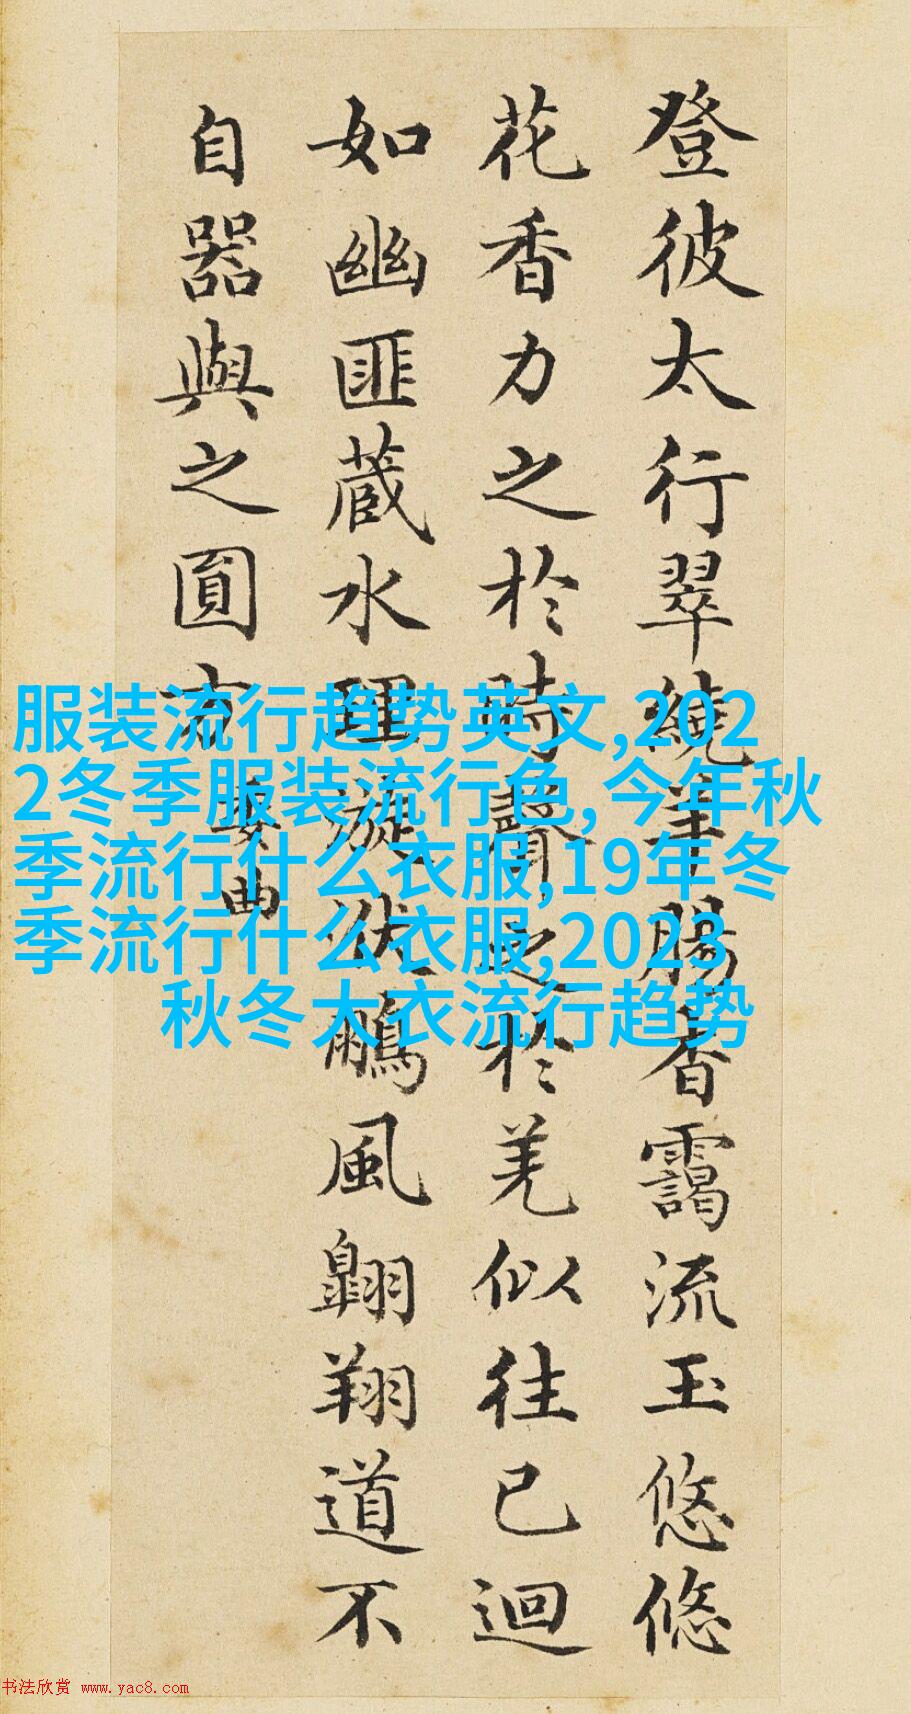 登彼太行翠繞羊腸杳靄流玉悠悠
花香力之於時聲之於羌似往已迴
如幽匪蔵水理漩洑鵬風翺翔道不
自器與之圓方
委曲
服装流行趋势英文,202
2冬季服装流行色,今年秋
季流行什么衣服,19年冬
季流行什么衣服,2023
秋冬大衣流行趋势
书法欣赏 www.yac8.com